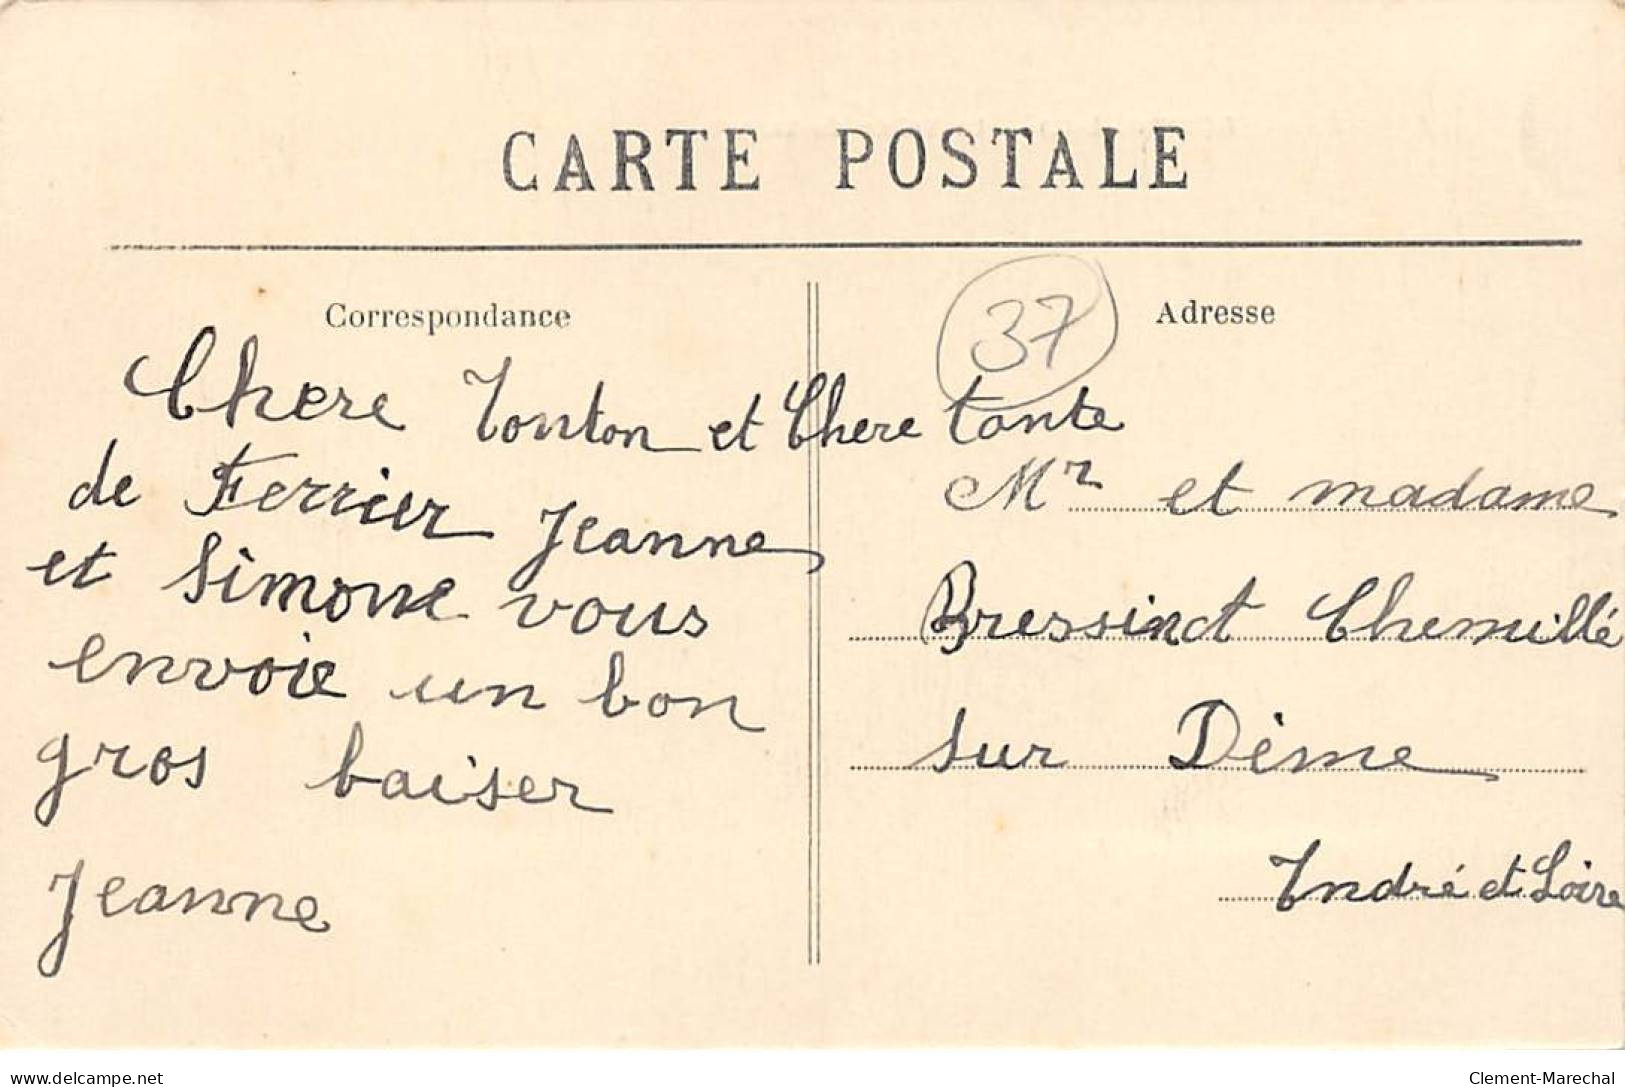 CARTE POSTALE
Correspondance
Chere Tonton et Chere tante
de Ferrier Jeanne
et Simone vous
envoie un bon
gros baiser
Jeanne
37
Adresse
Mr et madame
Bressinct Chemillé
sur Dème
Indré et Loire
www.delcampe.net
Clement-Marechal